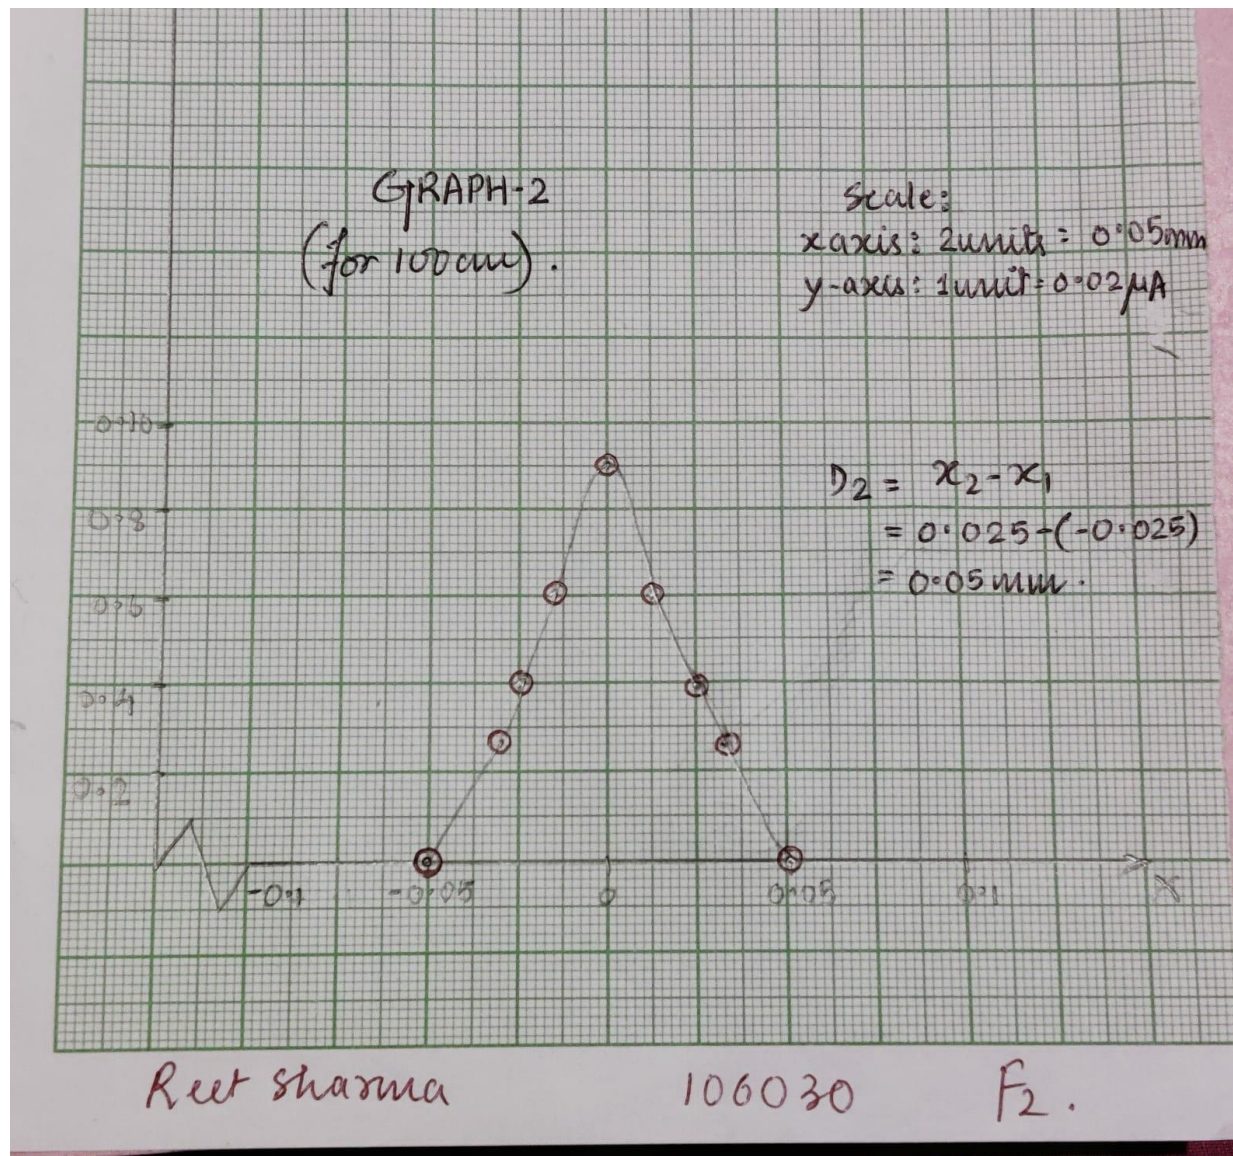 GRAPH-2
(for 100cm).
Scale:
x axis: 2units = 0.05mm
y-axis: 1unit = 0.02μA
0.10
0.8
0.6
0.4
0.2
D2 = x2 - x1
= 0.025-(-0.025)
= 0.05mm.
-0.1 -0.05 0 0.05 0.1 X
Reet Sharma 106030 F2.